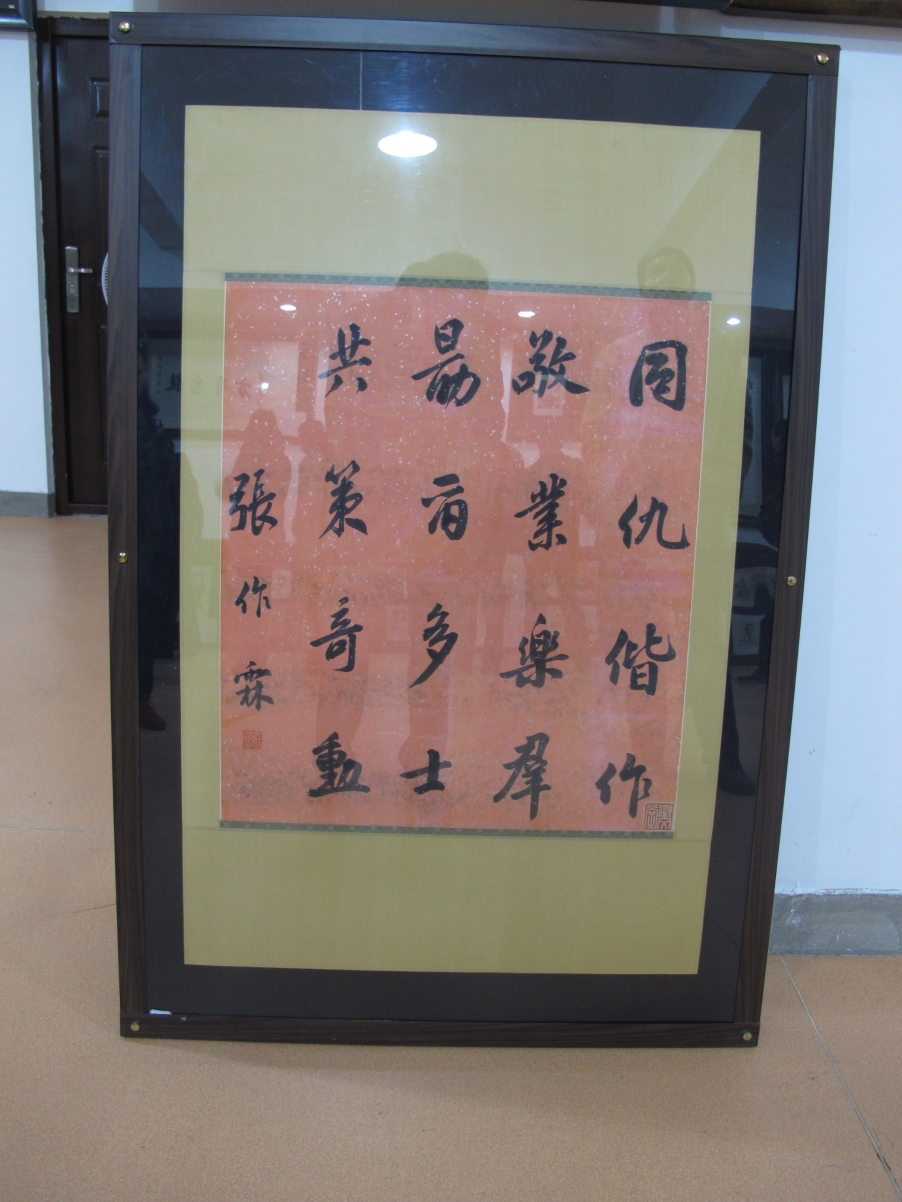 同仇偕作
敬業樂羣
勗多士
共策奇勳
張作霖